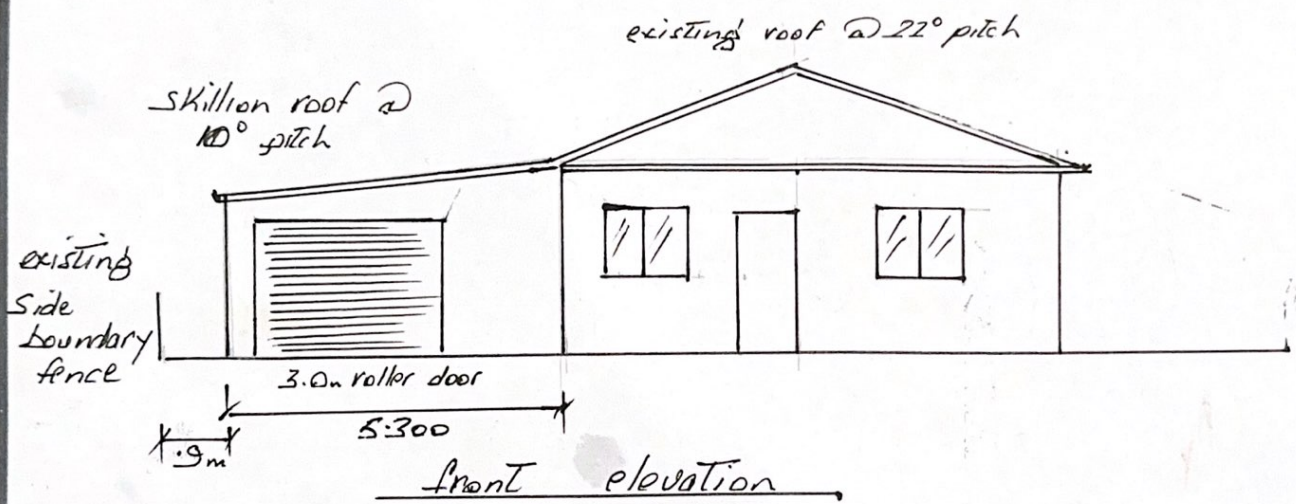 existing roof @ 22° pitch
skillion roof @
10° pitch
existing
side
boundary
fence
3.0m roller door
5.300
.9m
front elevation